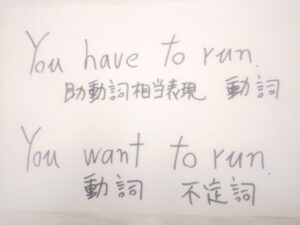 You have to run.
助動詞相当表現 動詞
You want to run.
動詞 不定詞